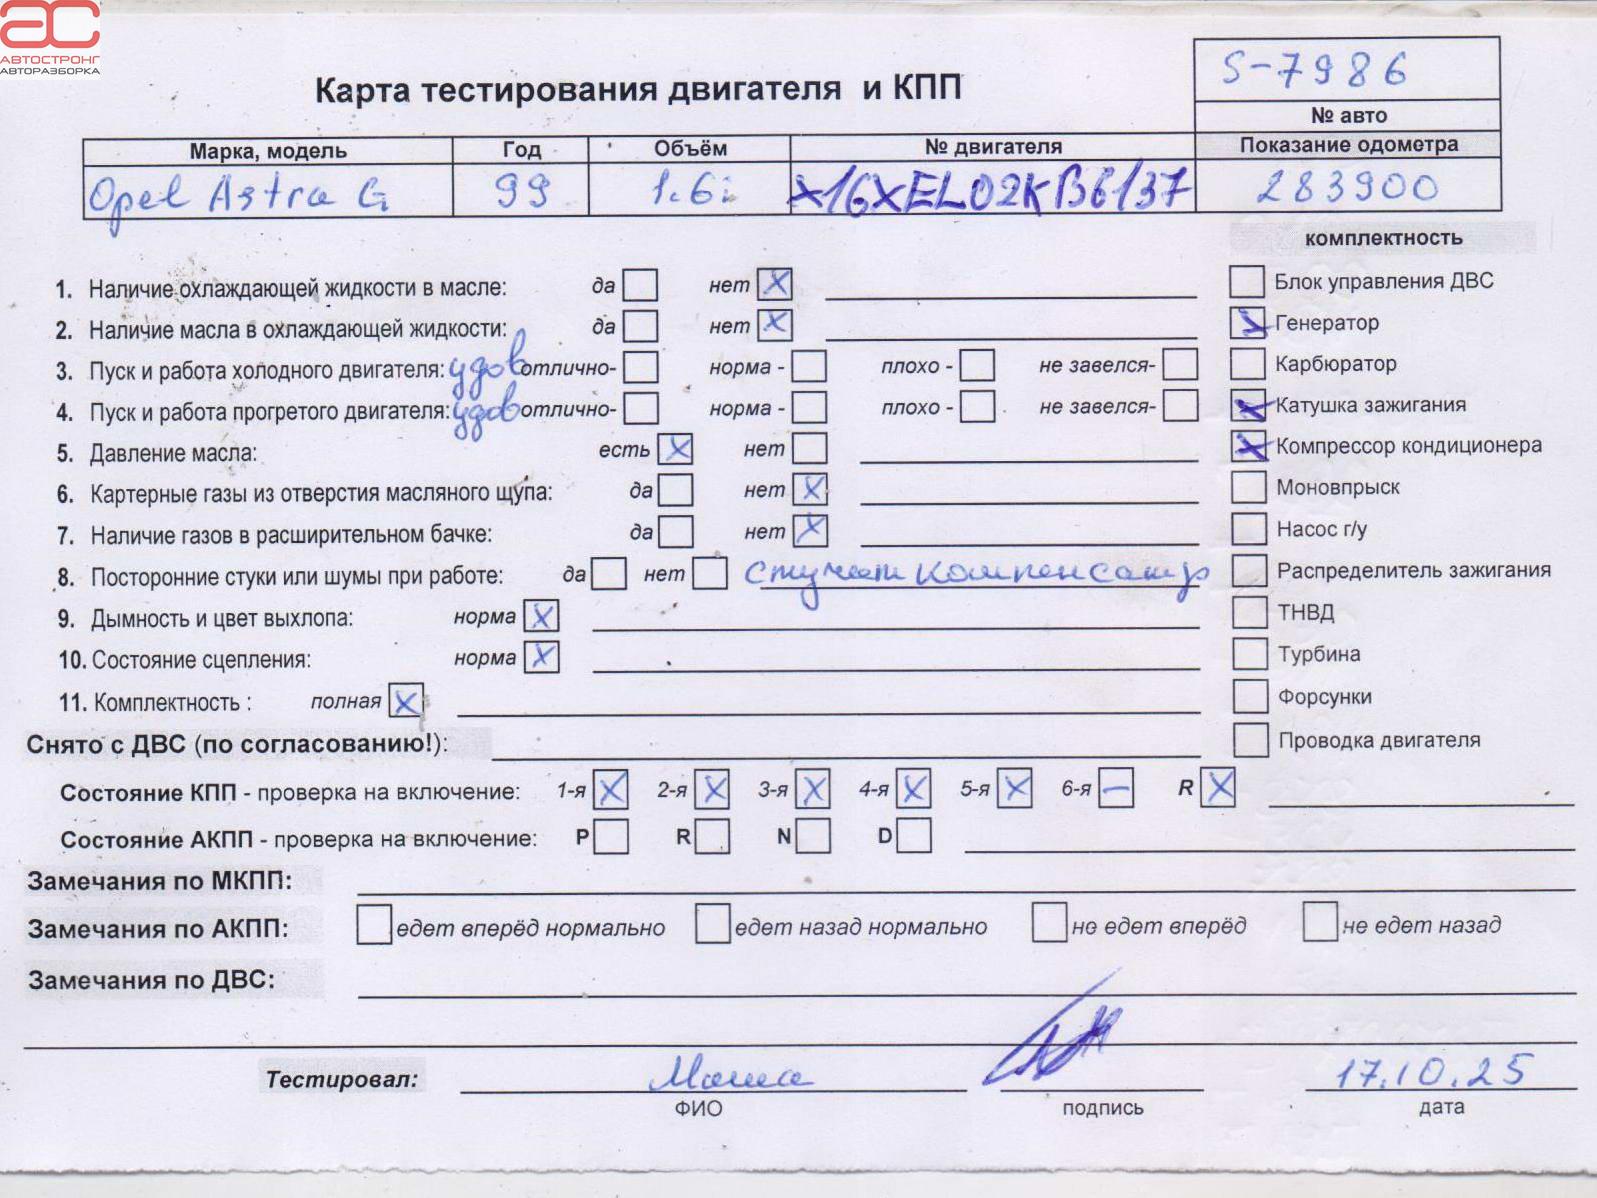 АВТОСТРОНГ
АВТОРАЗБОРКА
S-7986
Карта тестирования двигателя и КПП
№ авто
Марка, модель Год Объём № двигателя Показание одометра
Opel Astra G 99 1.6i X16XEL02KB6137 283900
комплектность
1. Наличие охлаждающей жидкости в масле: да нет X Блок управления ДВС
2. Наличие масла в охлаждающей жидкости: да нет X Генератор
3. Пуск и работа холодного двигателя: удов отлично- норма - плохо - не завелся- Карбюратор
4. Пуск и работа прогретого двигателя: удов отлично- норма - плохо - не завелся- X Катушка зажигания
5. Давление масла: есть X нет X Компрессор кондиционера
6. Картерные газы из отверстия масляного щупа: да нет X Моновпрыск
7. Наличие газов в расширительном бачке: да нет X Насос г/у
8. Посторонние стуки или шумы при работе: да нет стучат компенсатр Распределитель зажигания
9. Дымность и цвет выхлопа: норма X ТНВД
10. Состояние сцепления: норма X Турбина
11. Комплектность : полная X Форсунки
Снято с ДВС (по согласованию!): Проводка двигателя
Состояние КПП - проверка на включение: 1-я X 2-я X 3-я X 4-я X 5-я X 6-я – R X
Состояние АКПП - проверка на включение: P R N D
Замечания по МКПП:
Замечания по АКПП: едет вперёд нормально едет назад нормально не едет вперёд не едет назад
Замечания по ДВС:
Тестировал: 17.10.25
ФИО подпись дата